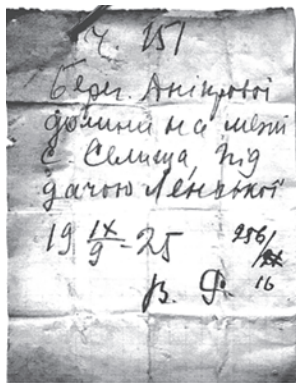 Ч. 151
Берег. Дніпрової
долини на межі
с. Селища, під
дачою Ленської
19 IX/9 - 25
256/
16
В. Ф.